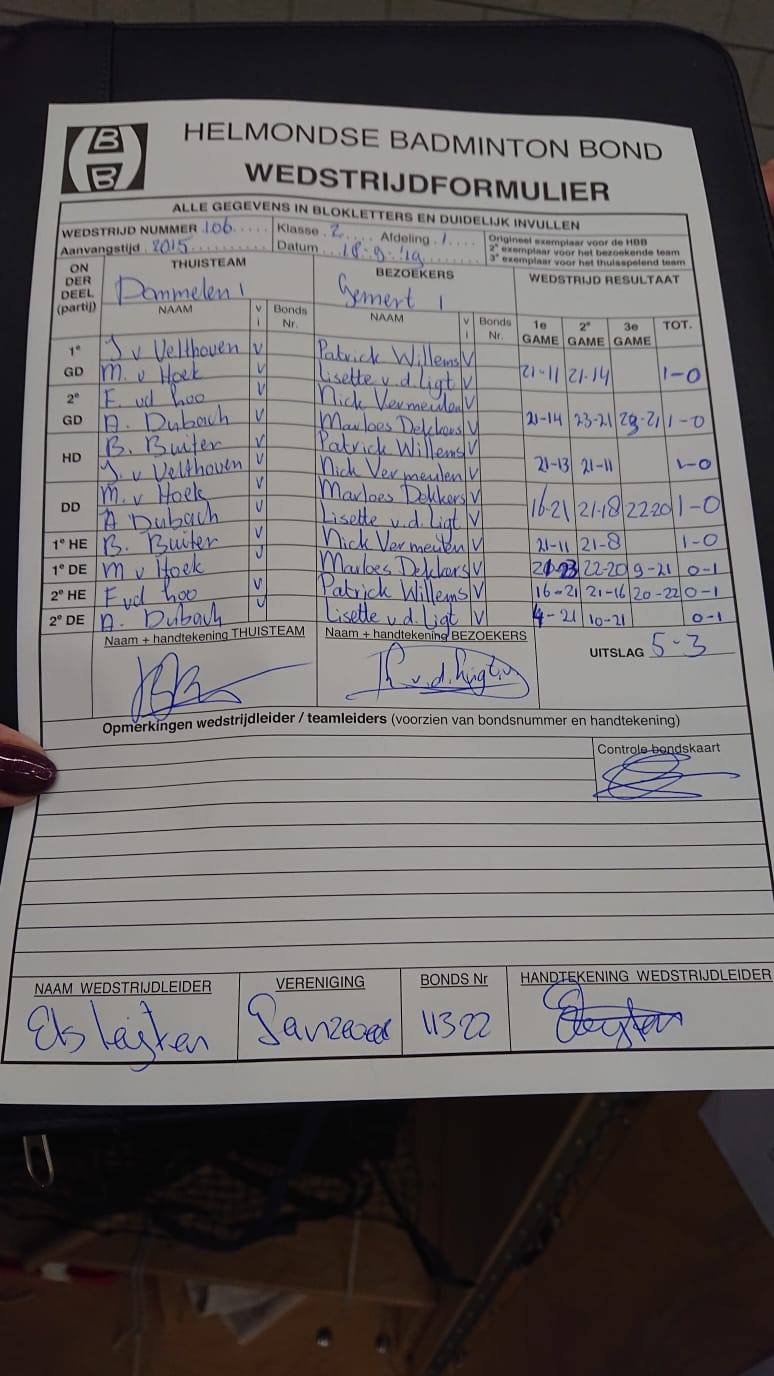 B
B
HELMONDSE BADMINTON BOND
WEDSTRIJDFORMULIER
ALLE GEGEVENS IN BLOKLETTERS EN DUIDELIJK INVULLEN
WEDSTRIJD NUMMER 106 Klasse 2 Afdeling 1
Aanvangstijd 2015 Datum 18-9-'19
Origineel exemplaar voor de HBB
2e exemplaar voor het bezoekende team
3e exemplaar voor het thuisspelend team
ON DER DEEL (partij) THUISTEAM BEZOEKERS WEDSTRIJD RESULTAAT
Dommelen 1 Gemert 1
NAAM v i Bonds Nr. NAAM v i Bonds Nr. 1e GAME 2e GAME 3e GAME TOT.
1e GD J v Velthoven v Patrick Willems V
M. v Hoek v Lisette v.d. Ligt V 21-11 21-14 1-0
2e GD E. vd hoo v Nick Vermeulen V
A. Dubach v Marloes Dekkers V 21-14 23-21 1-0
HD B. Buiter v Patrick Willems V
J. v Velthoven v Nick Vermeulen V 21-13 21-11 1-0
DD M. v Hoek v Marloes Dekkers V
A Dubach v Lisette v.d. Ligt V 16-21 21-18 22-20 1-0
1e HE B. Buiter v Nick Vermeulen V 21-11 21-8 1-0
1e DE M v Hoek v Marloes Dekkers V 22-20 9-21 0-1
2e HE E vd hoo v Patrick Willems V 16-21 21-16 20-22 0-1
2e DE A. Dubach v Lisette v.d. Ligt V 4-21 10-21 0-1
Naam + handtekening THUISTEAM Naam + handtekening BEZOEKERS UITSLAG 5-3
v.d. Ligt
Opmerkingen wedstrijdleider / teamleiders (voorzien van bondsnummer en handtekening)
Controle bondskaart
NAAM WEDSTRIJDLEIDER VERENIGING BONDS Nr HANDTEKENING WEDSTRIJDLEIDER
Els Leijten 11322